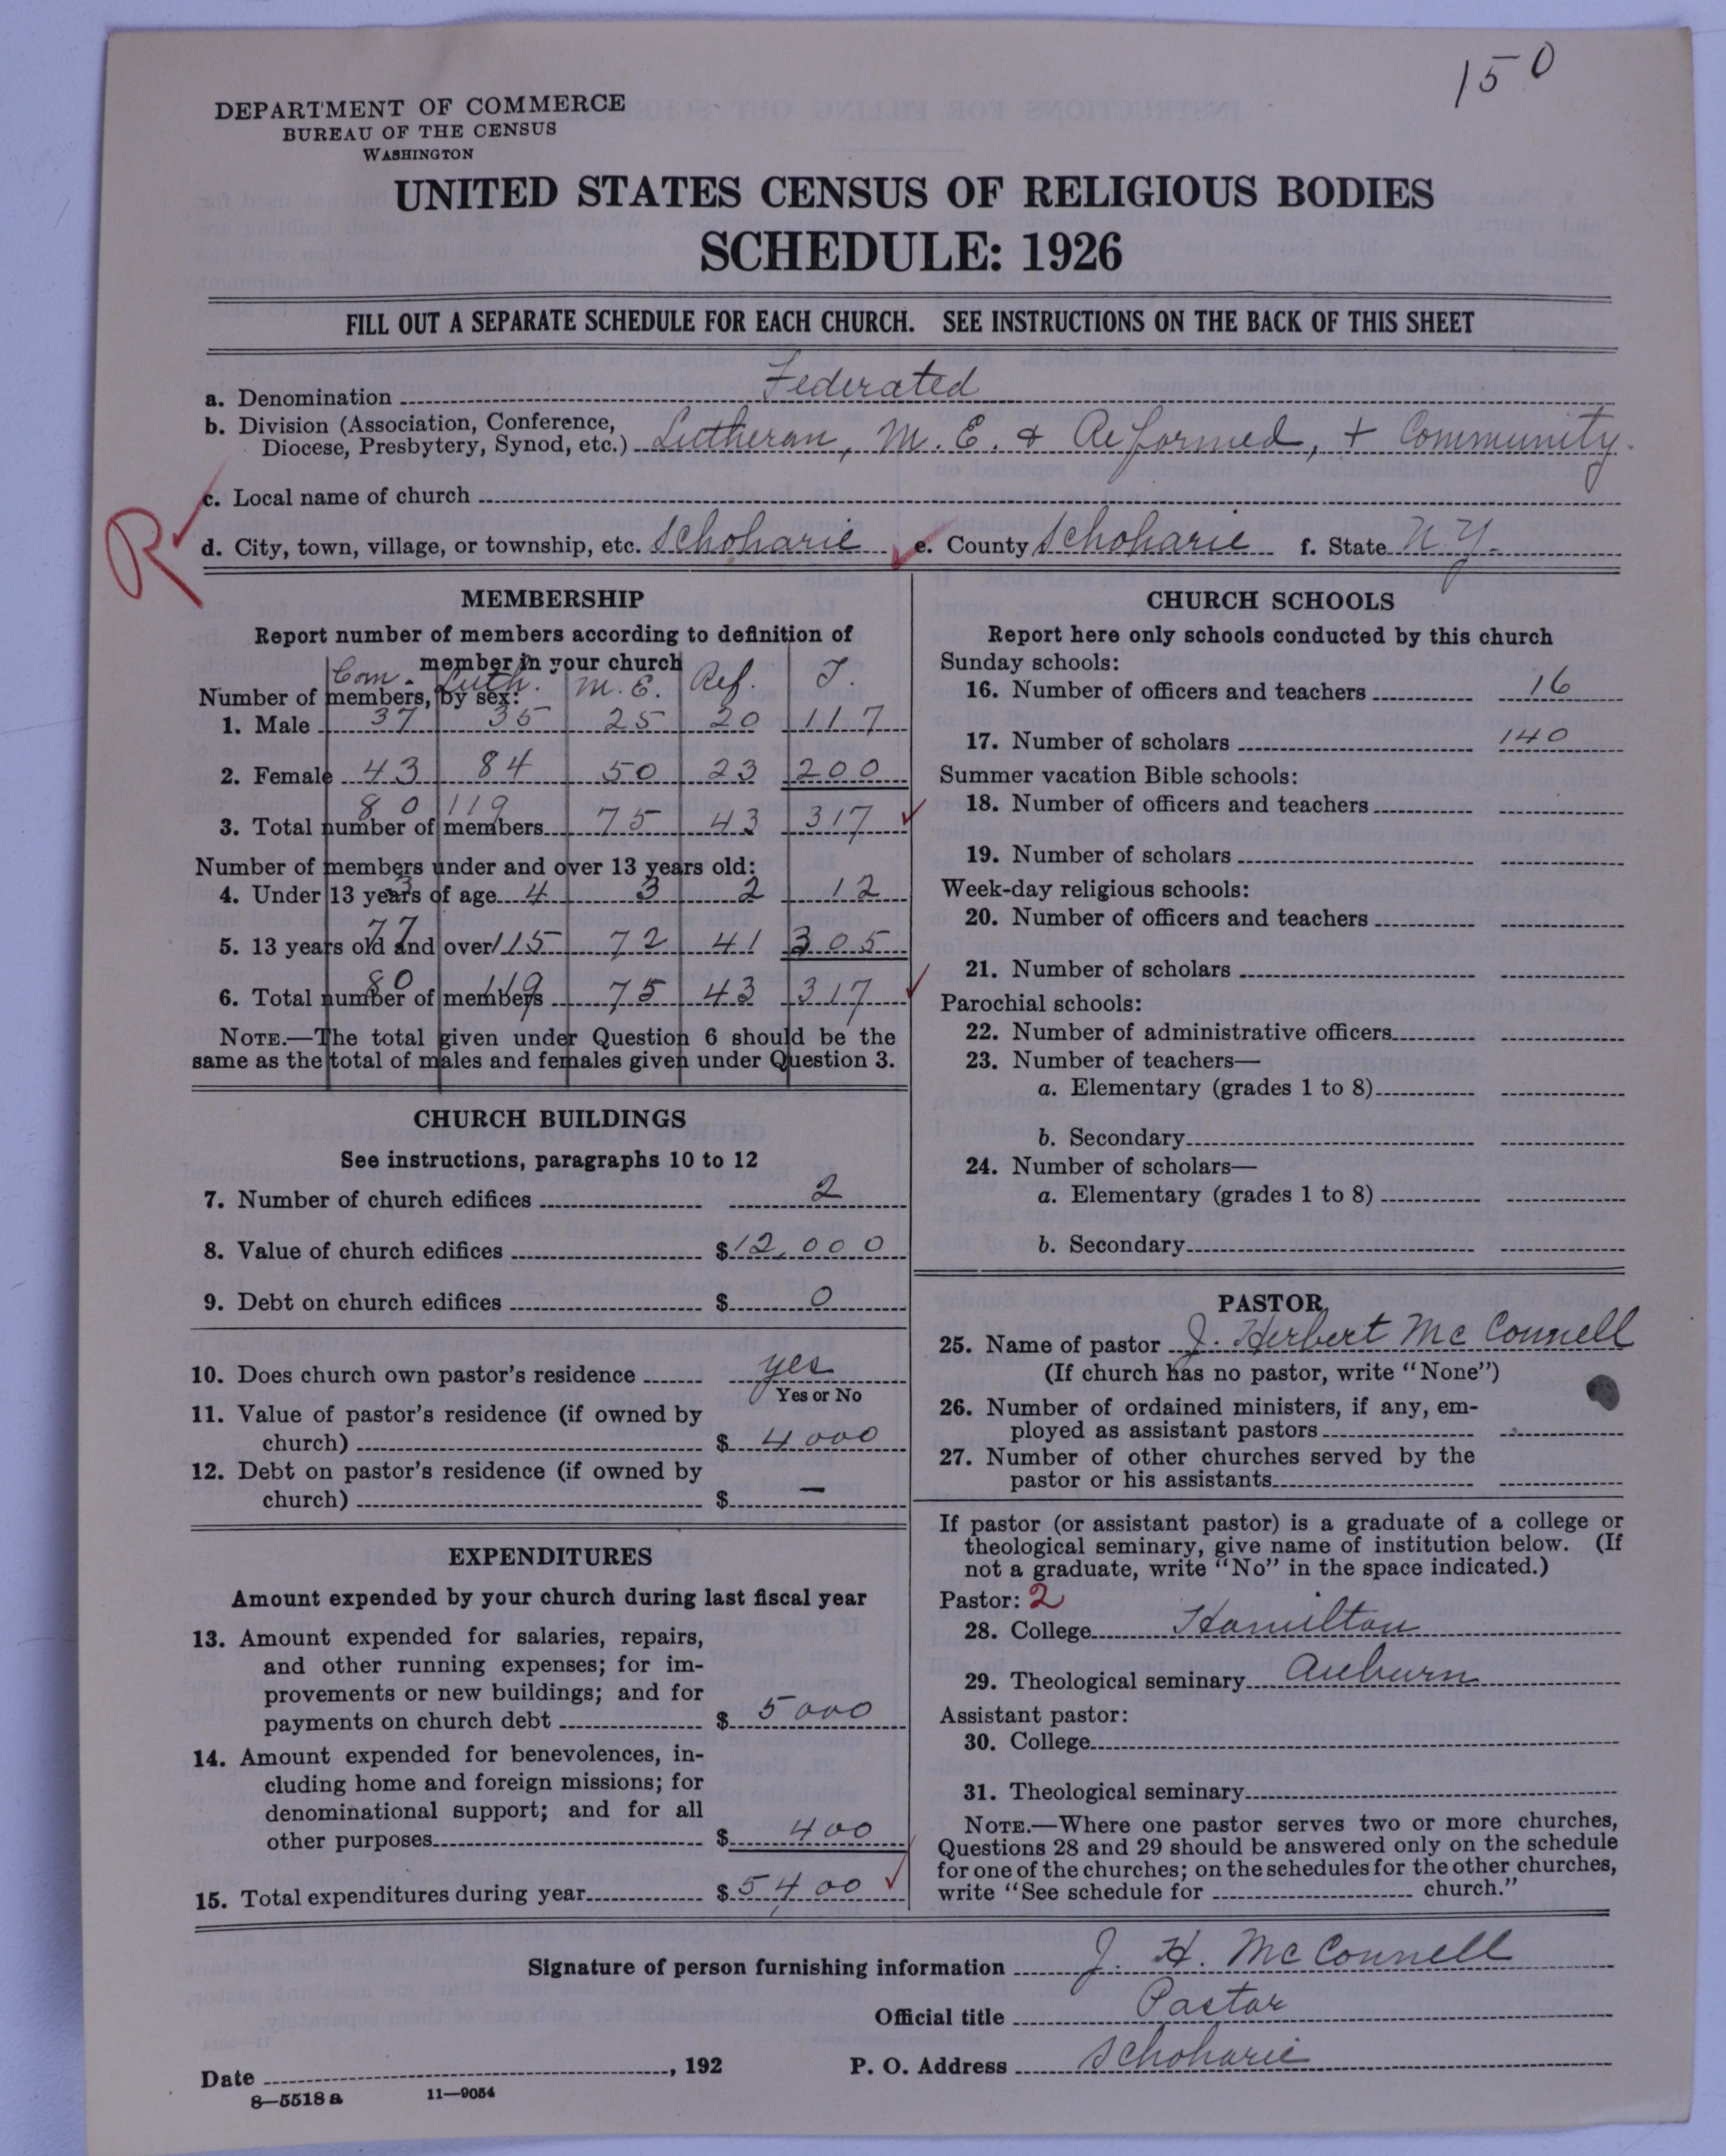 150
DEPARTMENT OF COMMERCE
BUREAU OF THE CENSUS
WASHINGTON
UNITED STATES CENSUS OF RELIGIOUS BODIES
SCHEDULE: 1926
FILL OUT A SEPARATE SCHEDULE FOR EACH CHURCH. SEE INSTRUCTIONS ON THE BACK OF THIS SHEET
a. Denomination Federated
b. Division (Association, Conference,
Diocese, Presbytery, Synod, etc.) Lutheran, M. E. & Reformed, + Community.
c. Local name of church
R
d. City, town, village, or township, etc. Schoharie e. County Schoharie f. State N.Y.
MEMBERSHIP
Report number of members according to definition of
member in your church
Com. Luth. M.E. Ref. T.
Number of members, by sex:
1. Male 37 35 25 20 117
2. Female 43 84 50 23 200
3. Total number of members 80 119 75 43 317
Number of members under and over 13 years old:
4. Under 13 years of age 3 4 3 2 12
5. 13 years old and over 77 115 72 41 305
6. Total number of members 80 119 75 43 317
NOTE.—The total given under Question 6 should be the
same as the total of males and females given under Question 3.
CHURCH BUILDINGS
See instructions, paragraphs 10 to 12
7. Number of church edifices 2
8. Value of church edifices $12,000
9. Debt on church edifices $ 0
10. Does church own pastor's residence yes
Yes or No
11. Value of pastor's residence (if owned by
church) $ 4000
12. Debt on pastor's residence (if owned by
church) $ —
EXPENDITURES
Amount expended by your church during last fiscal year
13. Amount expended for salaries, repairs,
and other running expenses; for im-
provements or new buildings; and for
payments on church debt $ 5000
14. Amount expended for benevolences, in-
cluding home and foreign missions; for
denominational support; and for all
other purposes $ 400
15. Total expenditures during year $ 5,400
CHURCH SCHOOLS
Report here only schools conducted by this church
Sunday schools:
16. Number of officers and teachers 16
17. Number of scholars 140
Summer vacation Bible schools:
18. Number of officers and teachers
19. Number of scholars
Week-day religious schools:
20. Number of officers and teachers
21. Number of scholars
Parochial schools:
22. Number of administrative officers
23. Number of teachers—
a. Elementary (grades 1 to 8)
b. Secondary
24. Number of scholars—
a. Elementary (grades 1 to 8)
b. Secondary
PASTOR
25. Name of pastor J. Herbert Mc Connell
(If church has no pastor, write "None")
26. Number of ordained ministers, if any, em-
ployed as assistant pastors
27. Number of other churches served by the
pastor or his assistants
If pastor (or assistant pastor) is a graduate of a college or
theological seminary, give name of institution below. (If
not a graduate, write "No" in the space indicated.)
Pastor: 2
28. College Hamilton
29. Theological seminary Auburn
Assistant pastor:
30. College
31. Theological seminary
NOTE.—Where one pastor serves two or more churches,
Questions 28 and 29 should be answered only on the schedule
for one of the churches; on the schedules for the other churches,
write "See schedule for church."
Signature of person furnishing information J. H. McConnell
Official title Pastor
Date , 192 P. O. Address Schoharie
8—5518 a 11—9054